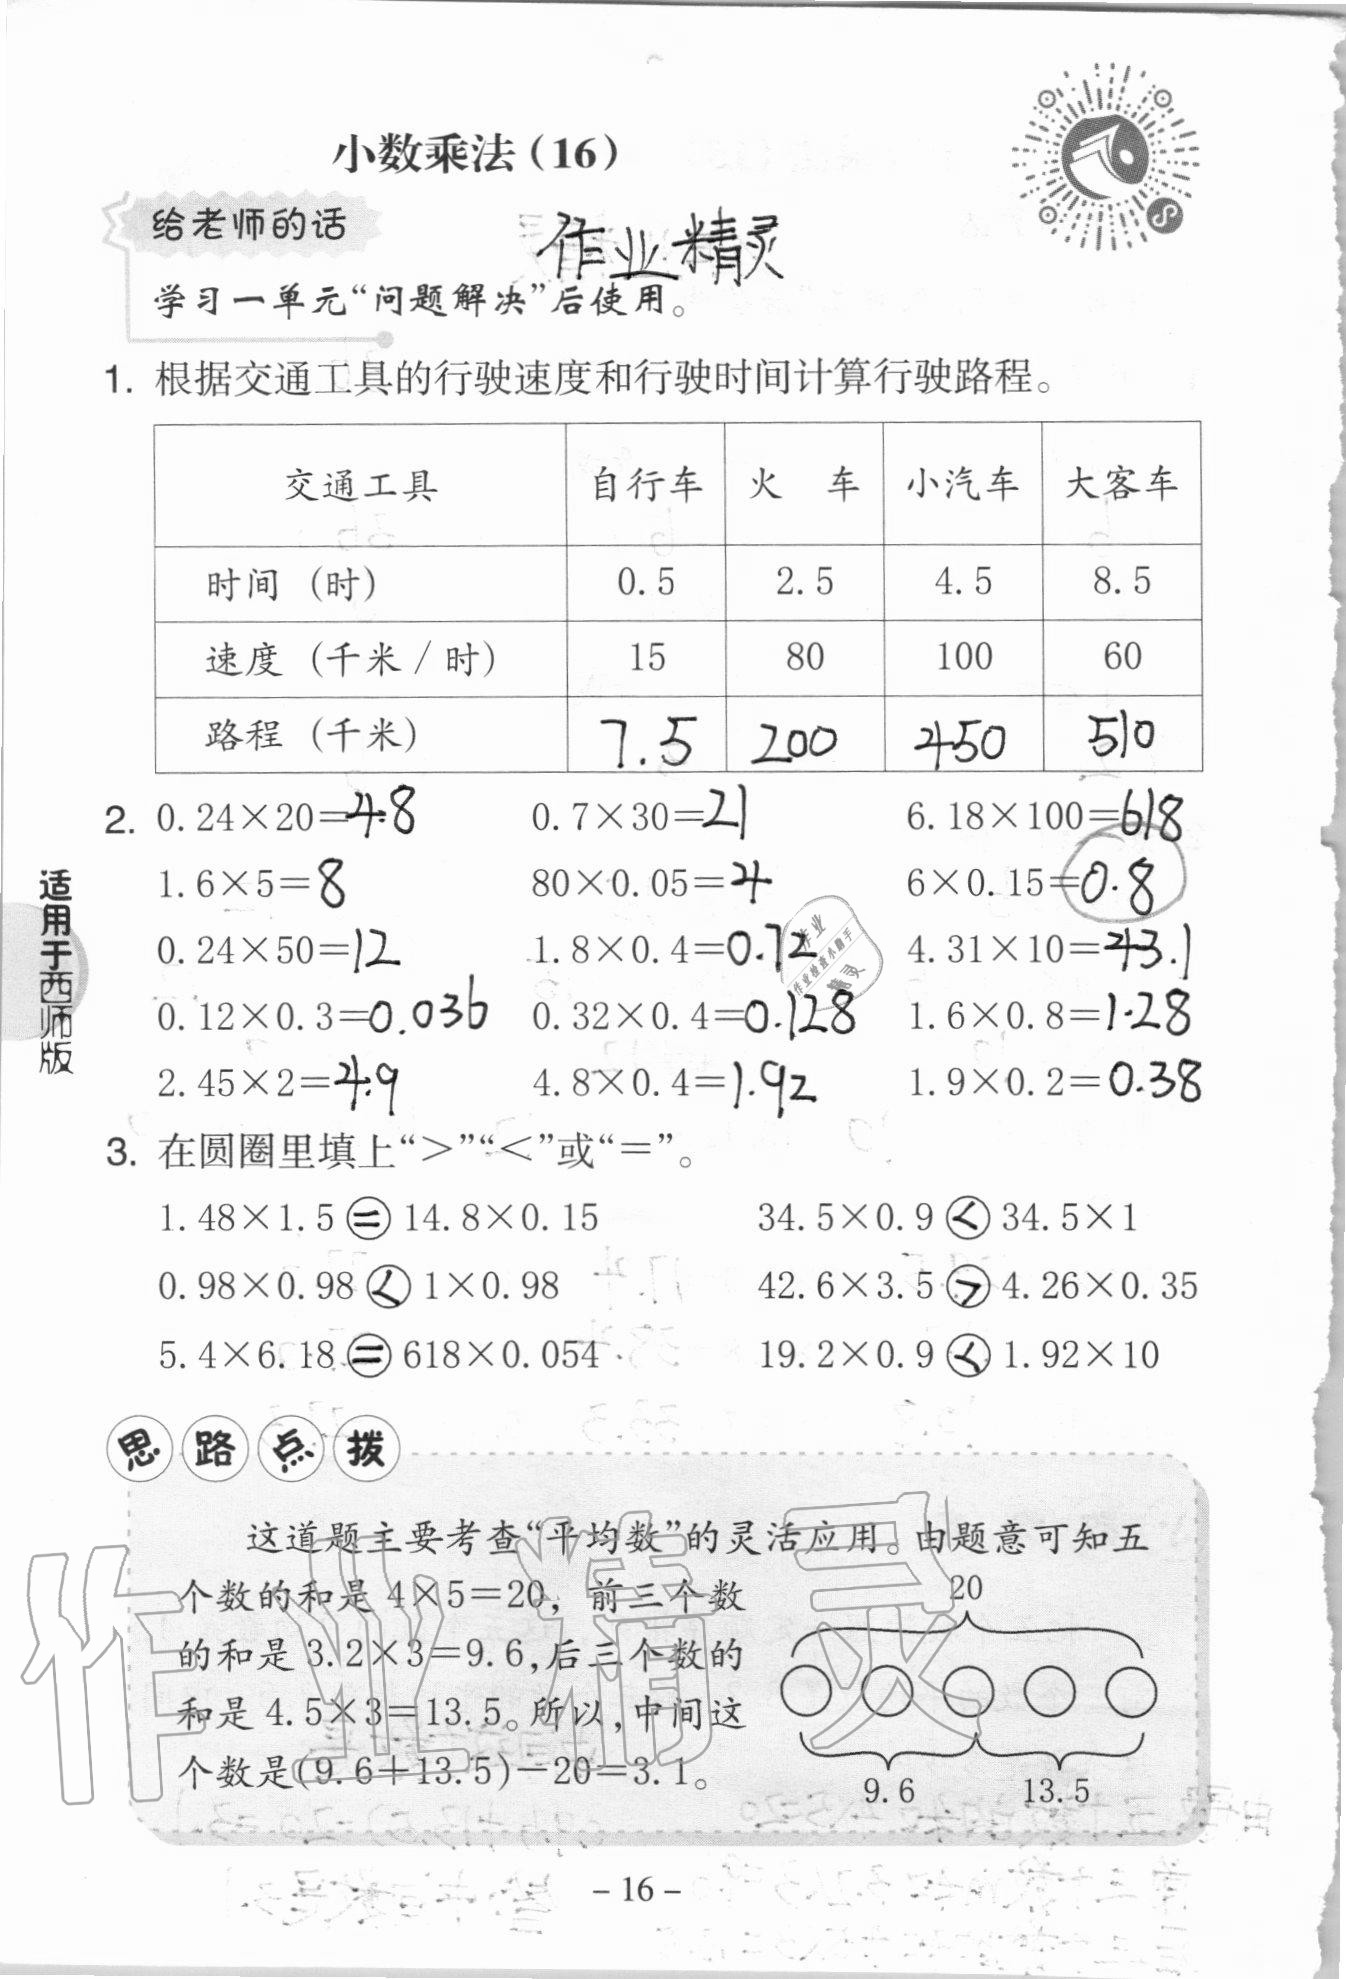 小数乘法(16)
给老师的话
作业精灵
学习一单元“问题解决”后使用。
1. 根据交通工具的行驶速度和行驶时间计算行驶路程。
交通工具 自行车 火 车 小汽车 大客车
时间(时) 0.5 2.5 4.5 8.5
速度(千米/时) 15 80 100 60
路程(千米) 7.5 200 450 510
2. 0.24×20=4.8 0.7×30=21 6.18×100=618
1.6×5=8 80×0.05=4 6×0.15=0.8
0.24×50=12 1.8×0.4=0.72 4.31×10=43.1
0.12×0.3=0.036 0.32×0.4=0.128 1.6×0.8=1.28
2.45×2=4.9 4.8×0.4=1.92 1.9×0.2=0.38
作业
作业检查小助手
精灵
适用于西师版
3. 在圆圈里填上“>”“<”或“=”。
1.48×1.5=14.8×0.15 34.5×0.9<34.5×1
0.98×0.98<1×0.98 42.6×3.5>4.26×0.35
5.4×6.18=618×0.054 19.2×0.9<1.92×10
思路点拨
这道题主要考查“平均数”的灵活应用。由题意可知五
个数的和是4×5=20，前三个数
的和是3.2×3=9.6,后三个数的
和是4.5×3=13.5。所以,中间这
个数是(9.6+13.5)-20=3.1。
20
9.6 13.5
作业精灵
-16-